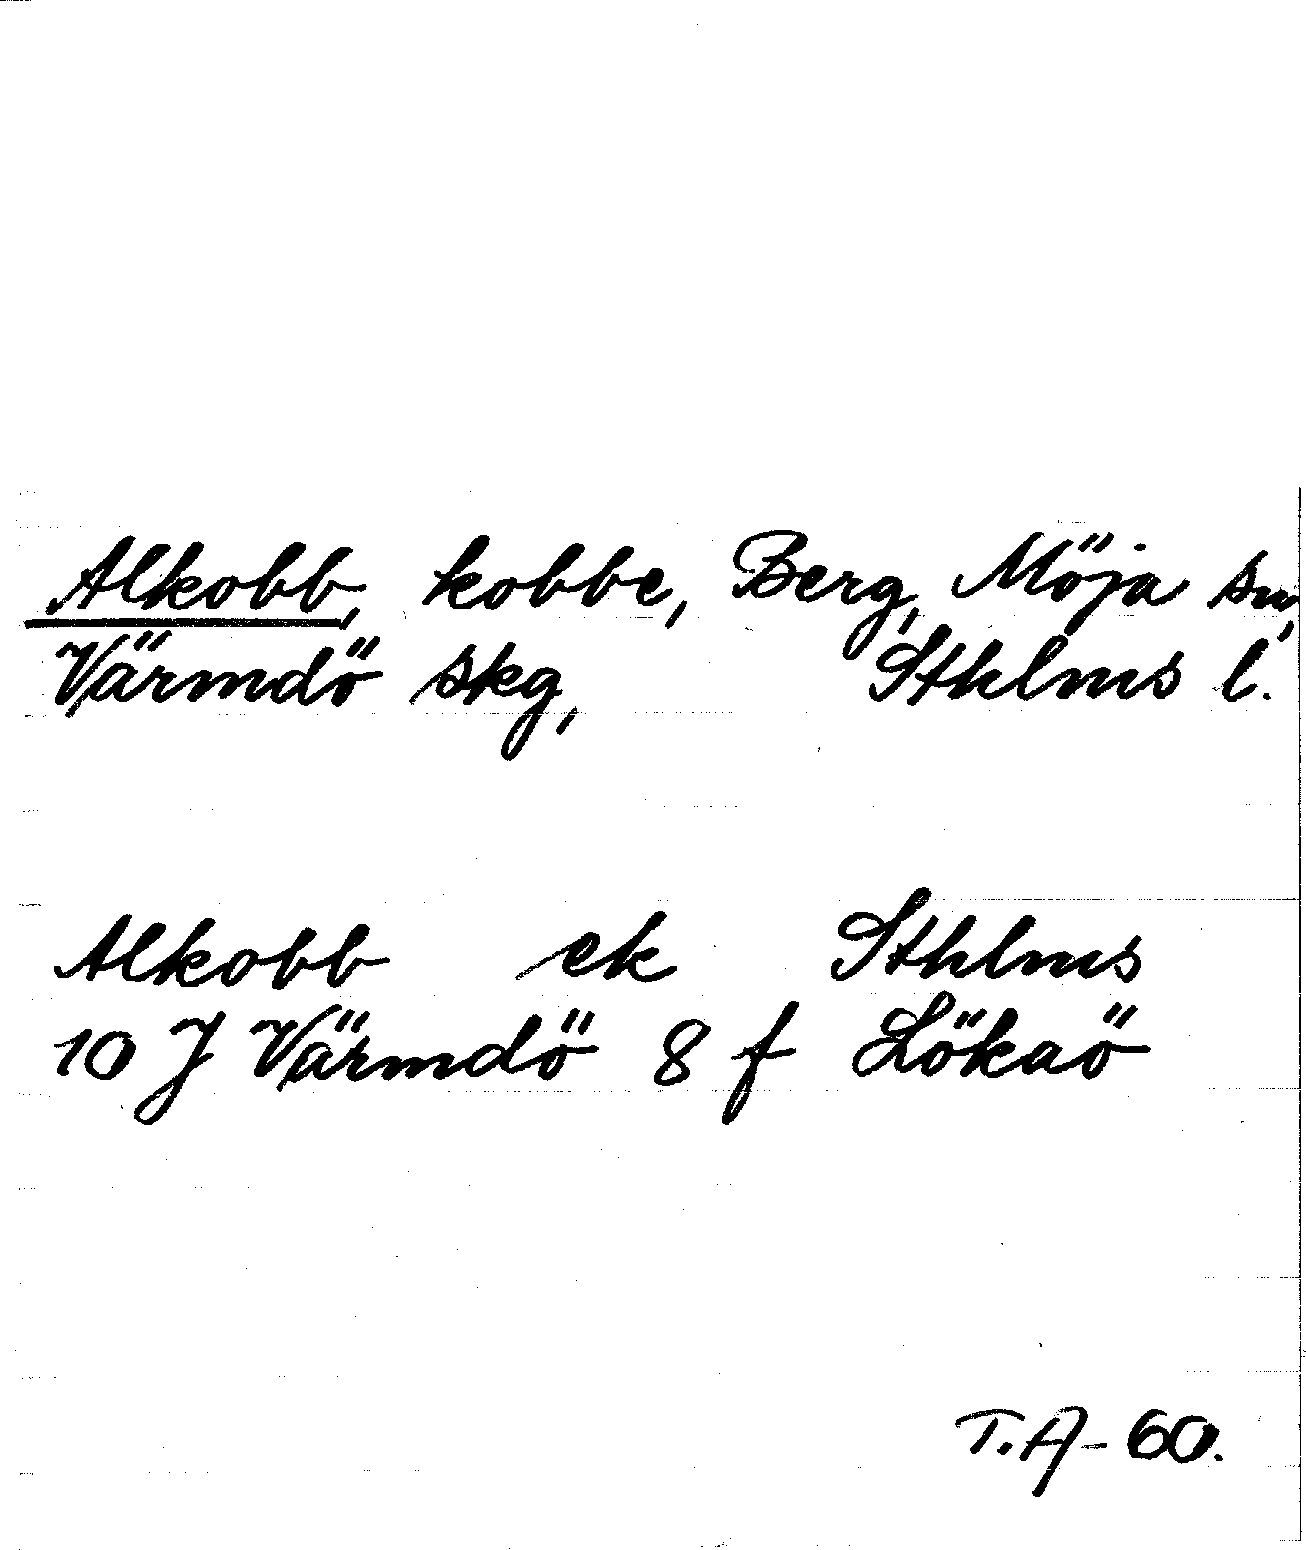 Alkobb, kobbe, Berg, Möja sn,
Värmdö skg, Sthlms l.
Alkobb ek Sthlms
10 J Värmdö 8 f Lökaö
T.A-60.